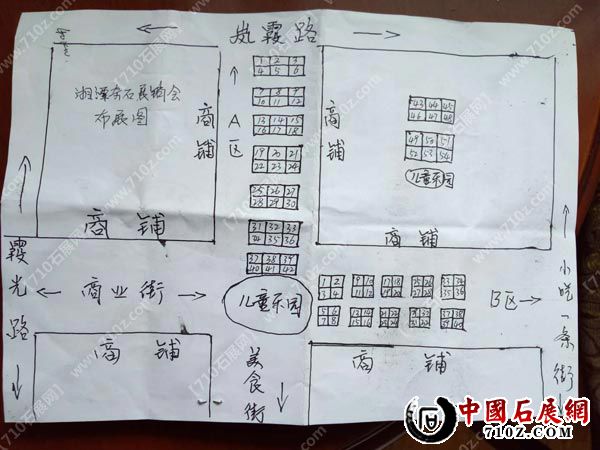 岚霞路
湘潭奇石展销会
布展图
商铺
商铺
A区
1 2 3
4 5 6
7 8 9
10 11 12
13 14 15
16 17 18
19 20 21
22 23 24
25 26 27
28 29 30
31 32 33
34 35 36
37 38 39
40 41 42
商铺
43 44 45
46 47 48
49 50 51
52 53 54
儿童乐园
商铺
霞光路
商业街
儿童乐园
1 2
3 4
5 6
7 8
B区
小吃一条街
商铺
美食街
商铺
中國石展網
7102.COM
【710z石展网】
www.710z.com